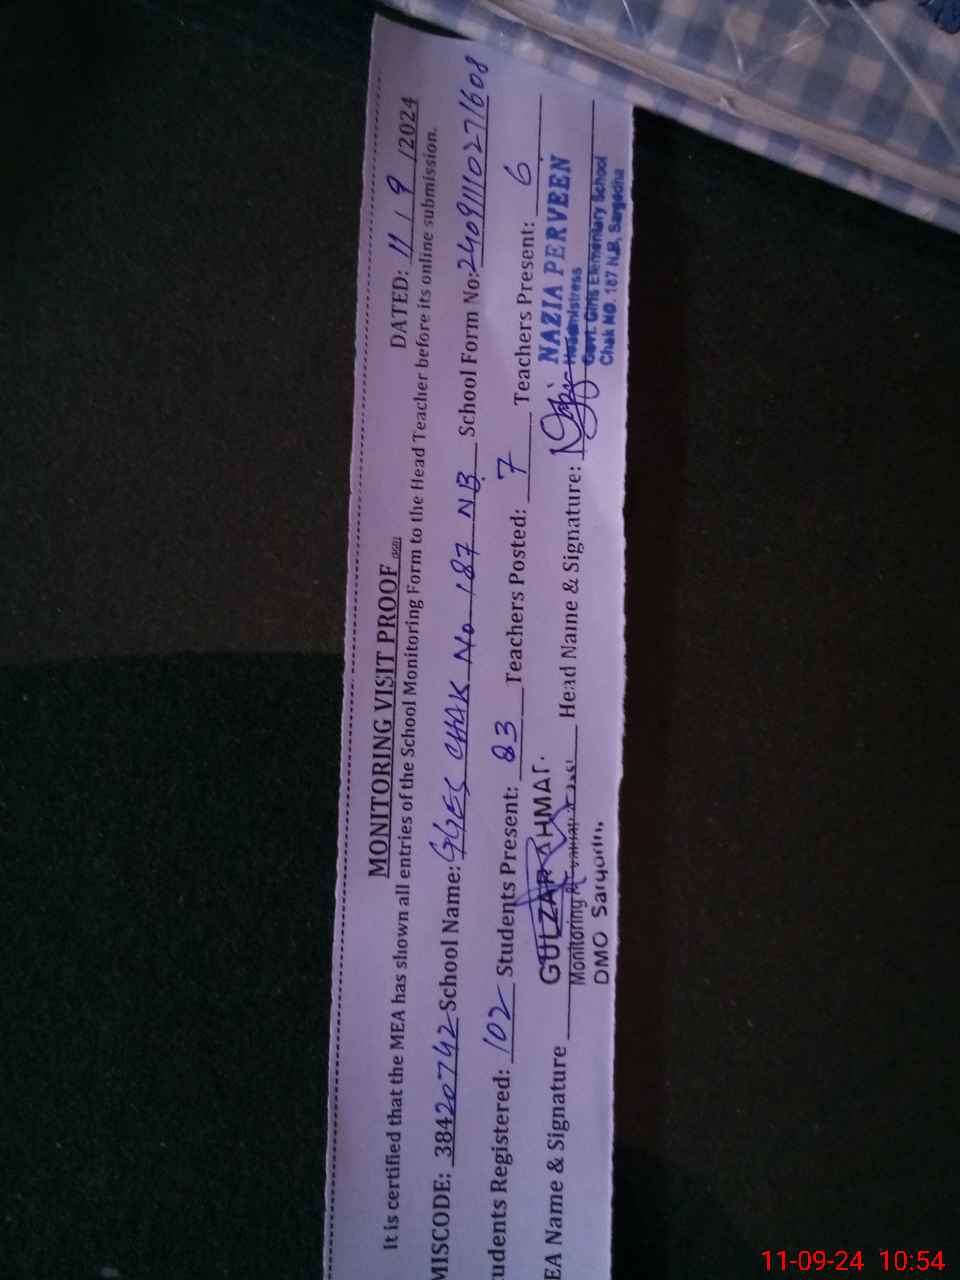 MONITORING VISIT PROOF
DATED: 11/9/2024
It is certified that the MEA has shown all entries of the School Monitoring Form to the Head Teacher before its online submission.
MISCODE: 38420742 School Name: GGES CHAK No 187 NB School Form No: 24091110271608
udents Registered: 102 Students Present: 83 Teachers Posted: 7 Teachers Present: 6
EA Name & Signature GULZAR AHMAD Head Name & Signature: NAZIA PERVEEN
Monitoring Headmistress
DMO Govt. Girls Elementary School
Chak NO. 187 N.B, Sargodha
11-09-24 10:54